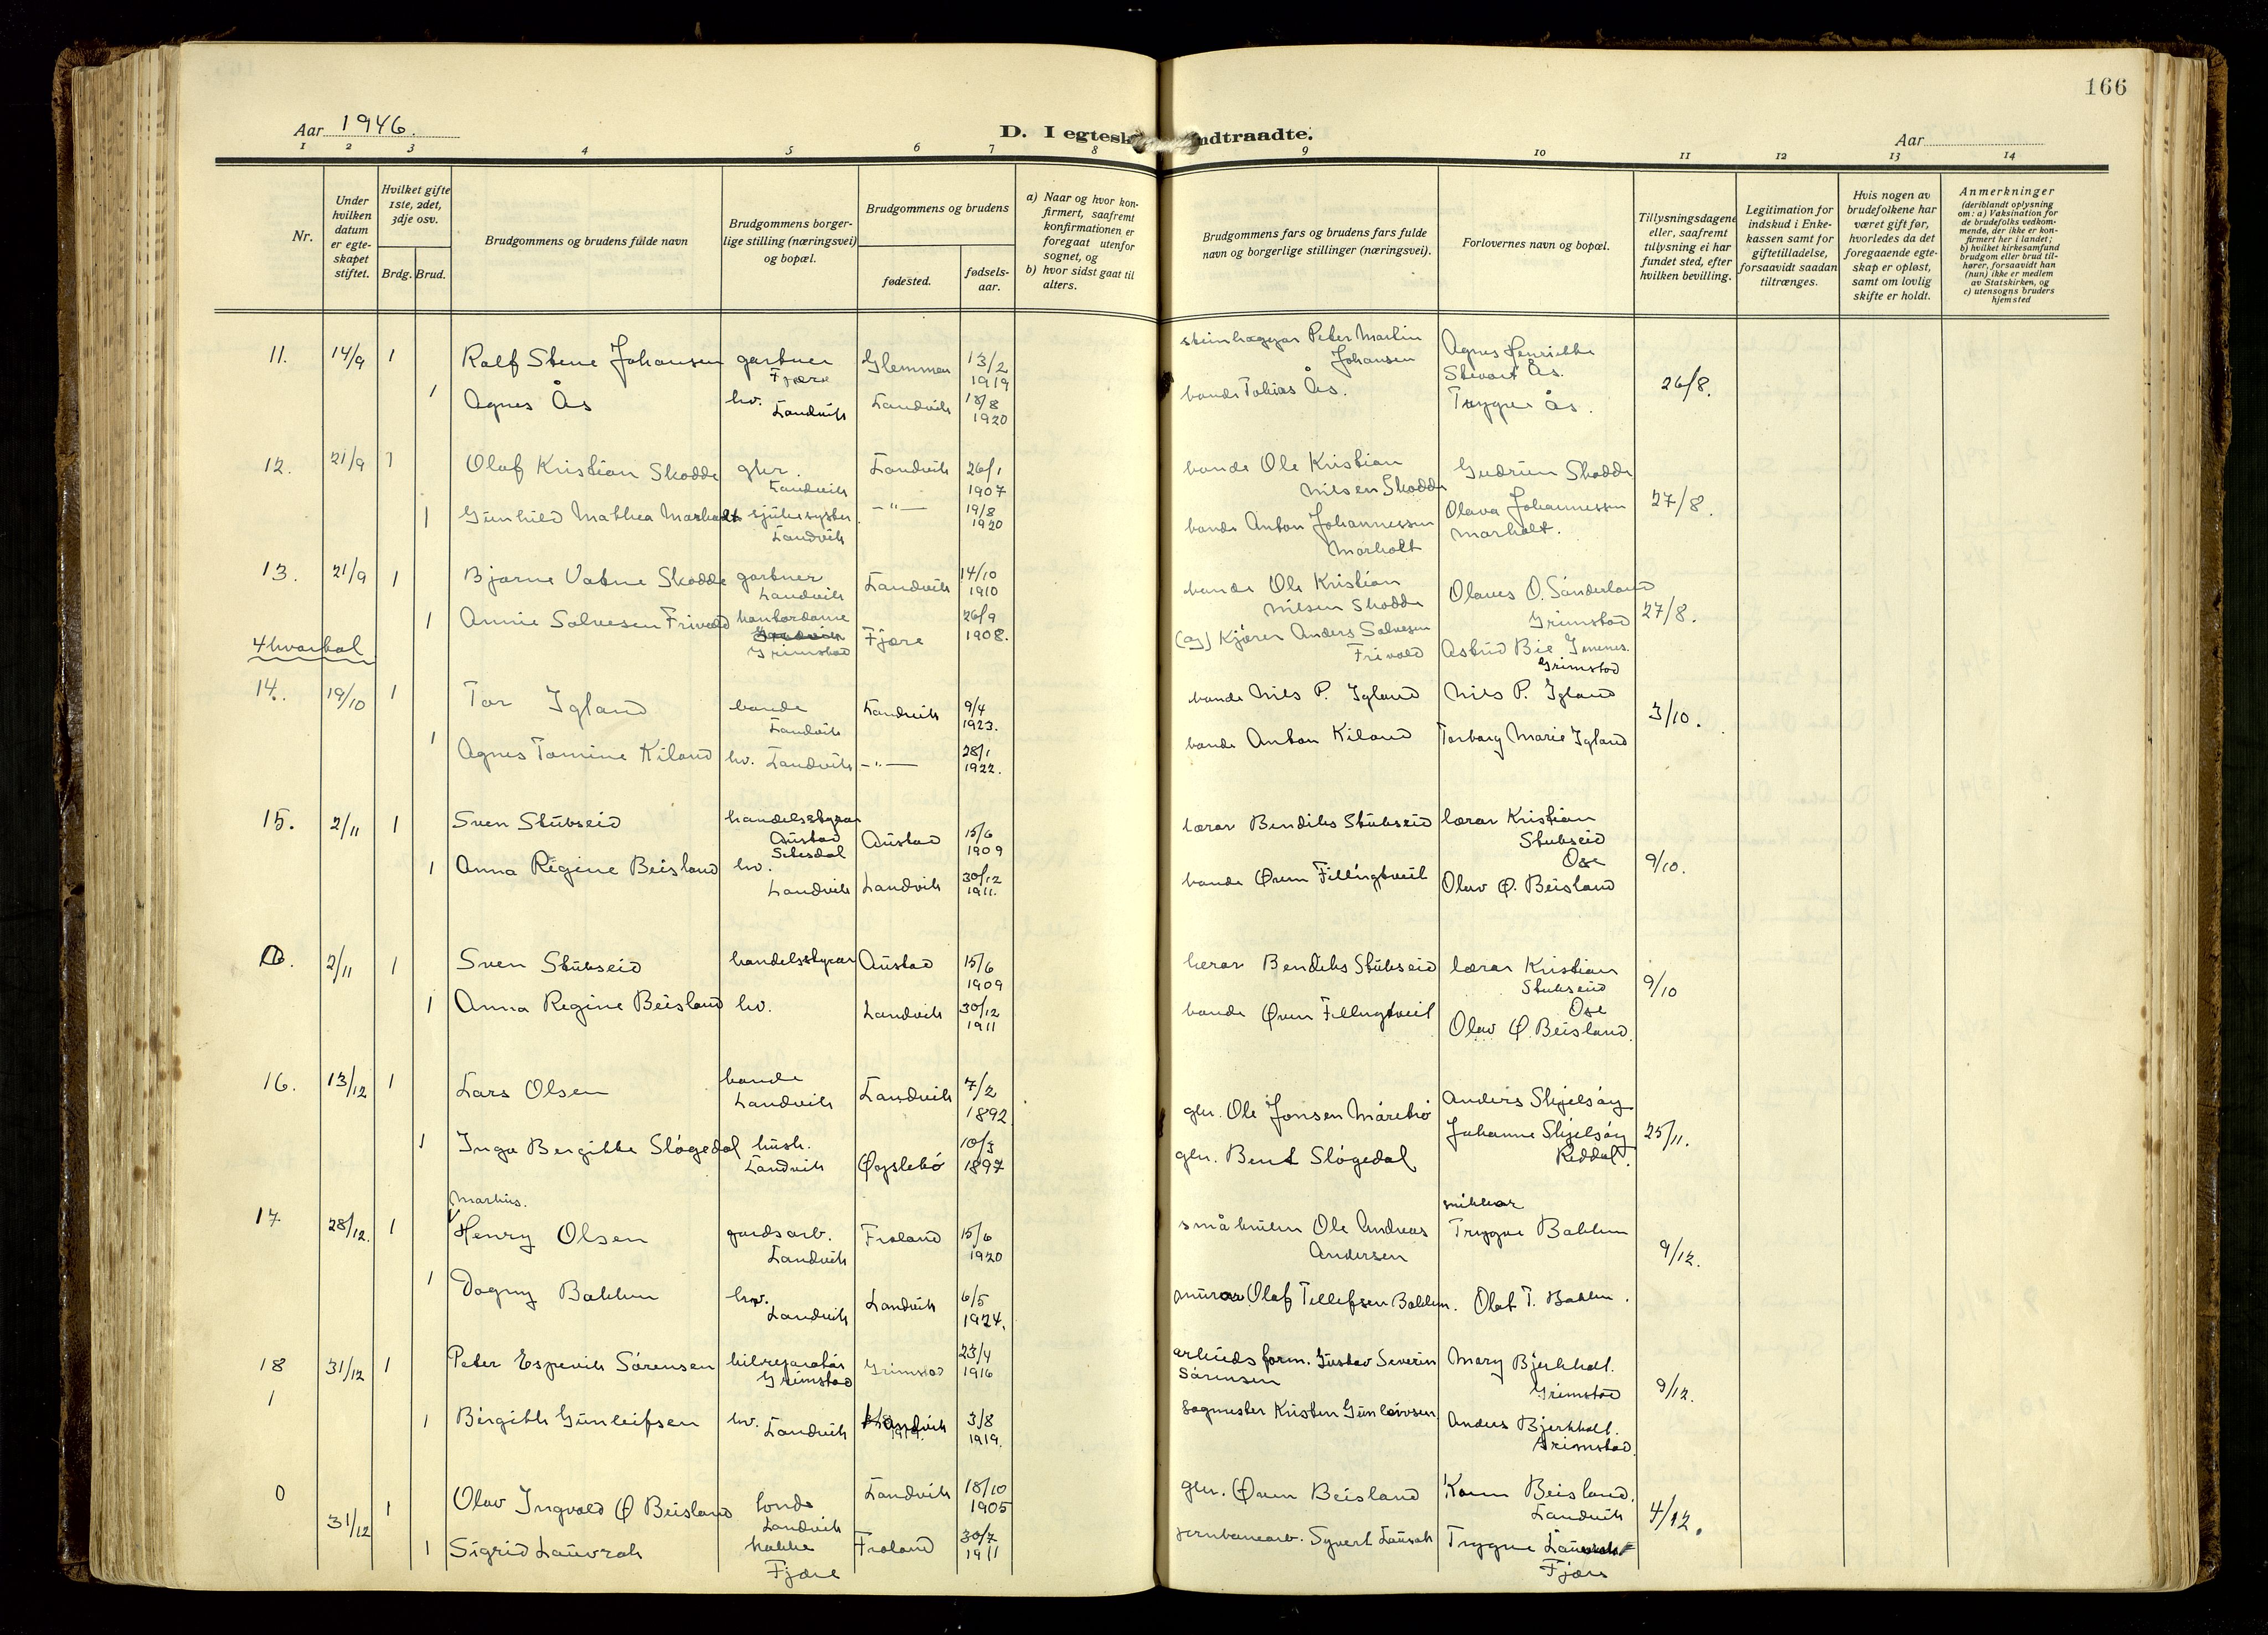 166
Aar 1946.
D. I egtesk
ndtraadte.
Aar
1 2 3 4 5 6 7 8 9 10 11 12 13 14
Nr.
Under hvilken datum er egteskapet stiftet.
Hvilket gifte 1ste, 2det, 3dje osv.
Brdg. Brud.
Brudgommens og brudens fulde navn
Brudgommens borgerlige stilling (næringsvei) og bopæl.
Brudgommens og brudens
fødested.
fødselsaar.
a) Naar og hvor konfirmert, saafremt konfirmationen er foregaat utenfor sognet, og
b) hvor sidst gaat til alters.
Brudgommens fars og brudens fars fulde navn og borgerlige stillinger (næringsvei).
Forlovernes navn og bopæl.
Tillysningsdagene eller, saafremt tillysning ei har fundet sted, efter hvilken bevilling.
Legitimation for indskud i Enkekassen samt for giftetilladelse, forsaavidt saadan tiltrænges.
Hvis nogen av brudefolkene har været gift før, hvorledes da det foregaaende egteskap er opløst, samt om lovlig skifte er holdt.
Anmerkninger (deriblandt oplysning om: a) Vaksination for de brudefolks vedkommende, der ikke er konfirmert her i landet; b) hvilket kirkesamfund brudgom eller brud tilhører, forsaavidt han (hun) ikke er medlem av Statskirken, og c) utensogns bruders hjemsted
11. 14/9 1 Ralf Stene Johansen gartner Fjære Glemmen 13/2 1919 Peter Martin Johansen Agnes Henriette Ås. 26/8.
1 Agnes Ås hv. Landvik Landvik 18/8 1920 bonde Tobias Ås. Trygve Ås.
12. 21/9 1 Olaf Kristian Skodde gbr. Landvik Landvik 26/1 1907 bonde Ole Kristian Nilsen Skodde Gudrun Skodde 27/8.
1 Gunhild Mathea Marholt sjukesyster Landvik -"- 19/8 1920 bonde Anton Johannessen Marholt Olava Johannessen Marholt.
13. 21/9 1 Bjarne Vatne Skodde gartner Landvik Landvik 14/10 1910 bonde Ole Kristian Nilsen Skodde Olaves O. Sønderland Grimstad 27/8.
1 Annie Salvesen Frivold kontordame Grimstad Fjære 26/9 1908. Anders Salvesen Frivold Astrid Bie Grimstad
4 kvartal
14. 19/10 1 Tor Igland bonde Landvik Landvik 9/4 1923. bonde Nils P. Igland Nils P. Igland 3/10.
1 Agnes Tomine Kiland hv. Landvik -"- 28/1 1922. bonde Anton Kiland Torborg Marie Igland
15. 2/11 1 Sven Stubseid handelsstyrar Austad Setesdal Austad 15/6 1909 lærar Bendiks Stubseid lærar Kristian Stubseid Ose 9/10.
1 Anna Regine Beisland hv. Landvik Landvik 30/12 1911. bonde Øven Fillingtveit Olav Ø. Beisland
2/11 1 Sven Stubseid handelsstyrar Austad 15/6 1909 lærar Bendiks Stubseid lærar Kristian Stubseid Ose 9/10
1 Anna Regine Beisland hv. Landvik 30/12 1911 bonde Øven Fillingtveit Olav Ø. Beisland.
16. 13/12 1 Lars Olsen bonde Landvik Landvik 7/2 1892 gbr. Ole Jonsen Anders Skjelsøy 25/11.
1 Inga Bergitte Sløgedal hush. Landvik Øyslebø 10/3 1897 gbr. Bent Sløgedal Johanne Skjelsøy Reddal.
17 28/12. 1 Markus. Henry Olsen gardsarb. Landvik Froland 15/6 1920 Ole Andreas Andersen snikkar Trygve Bakken 9/12.
1 Dagny Bakken hv. Landvik Landvik 6/5 1924. murar Olaf Tellefsen Bakken. Olaf T. Bakken.
18 31/12 1 Peter Espevik Sørensen bilreparatør Grimstad Grimstad 23/4 1916 arbeidsform. Gustav Severin Sørensen Mary Bjerkholt. Grimstad 9/12.
1
1 Birgith Gunleifsen hv. Landvik Landvik 3/8 1919. sagmester Kristen Gunleivsen Anders Bjerkholt. Grimstad.
0 31/12 1 Olav Ingvald Ø Beisland bonde Landvik Landvik 18/10 1905 gbr. Øven Beisland Beisland. Landvik 4/12.
1 Sigrid Lauvrak kokke Fjære Froland 30/7 1911 jernbanearb. Syvert Lauvrak Trygve Lauvrak Fjære